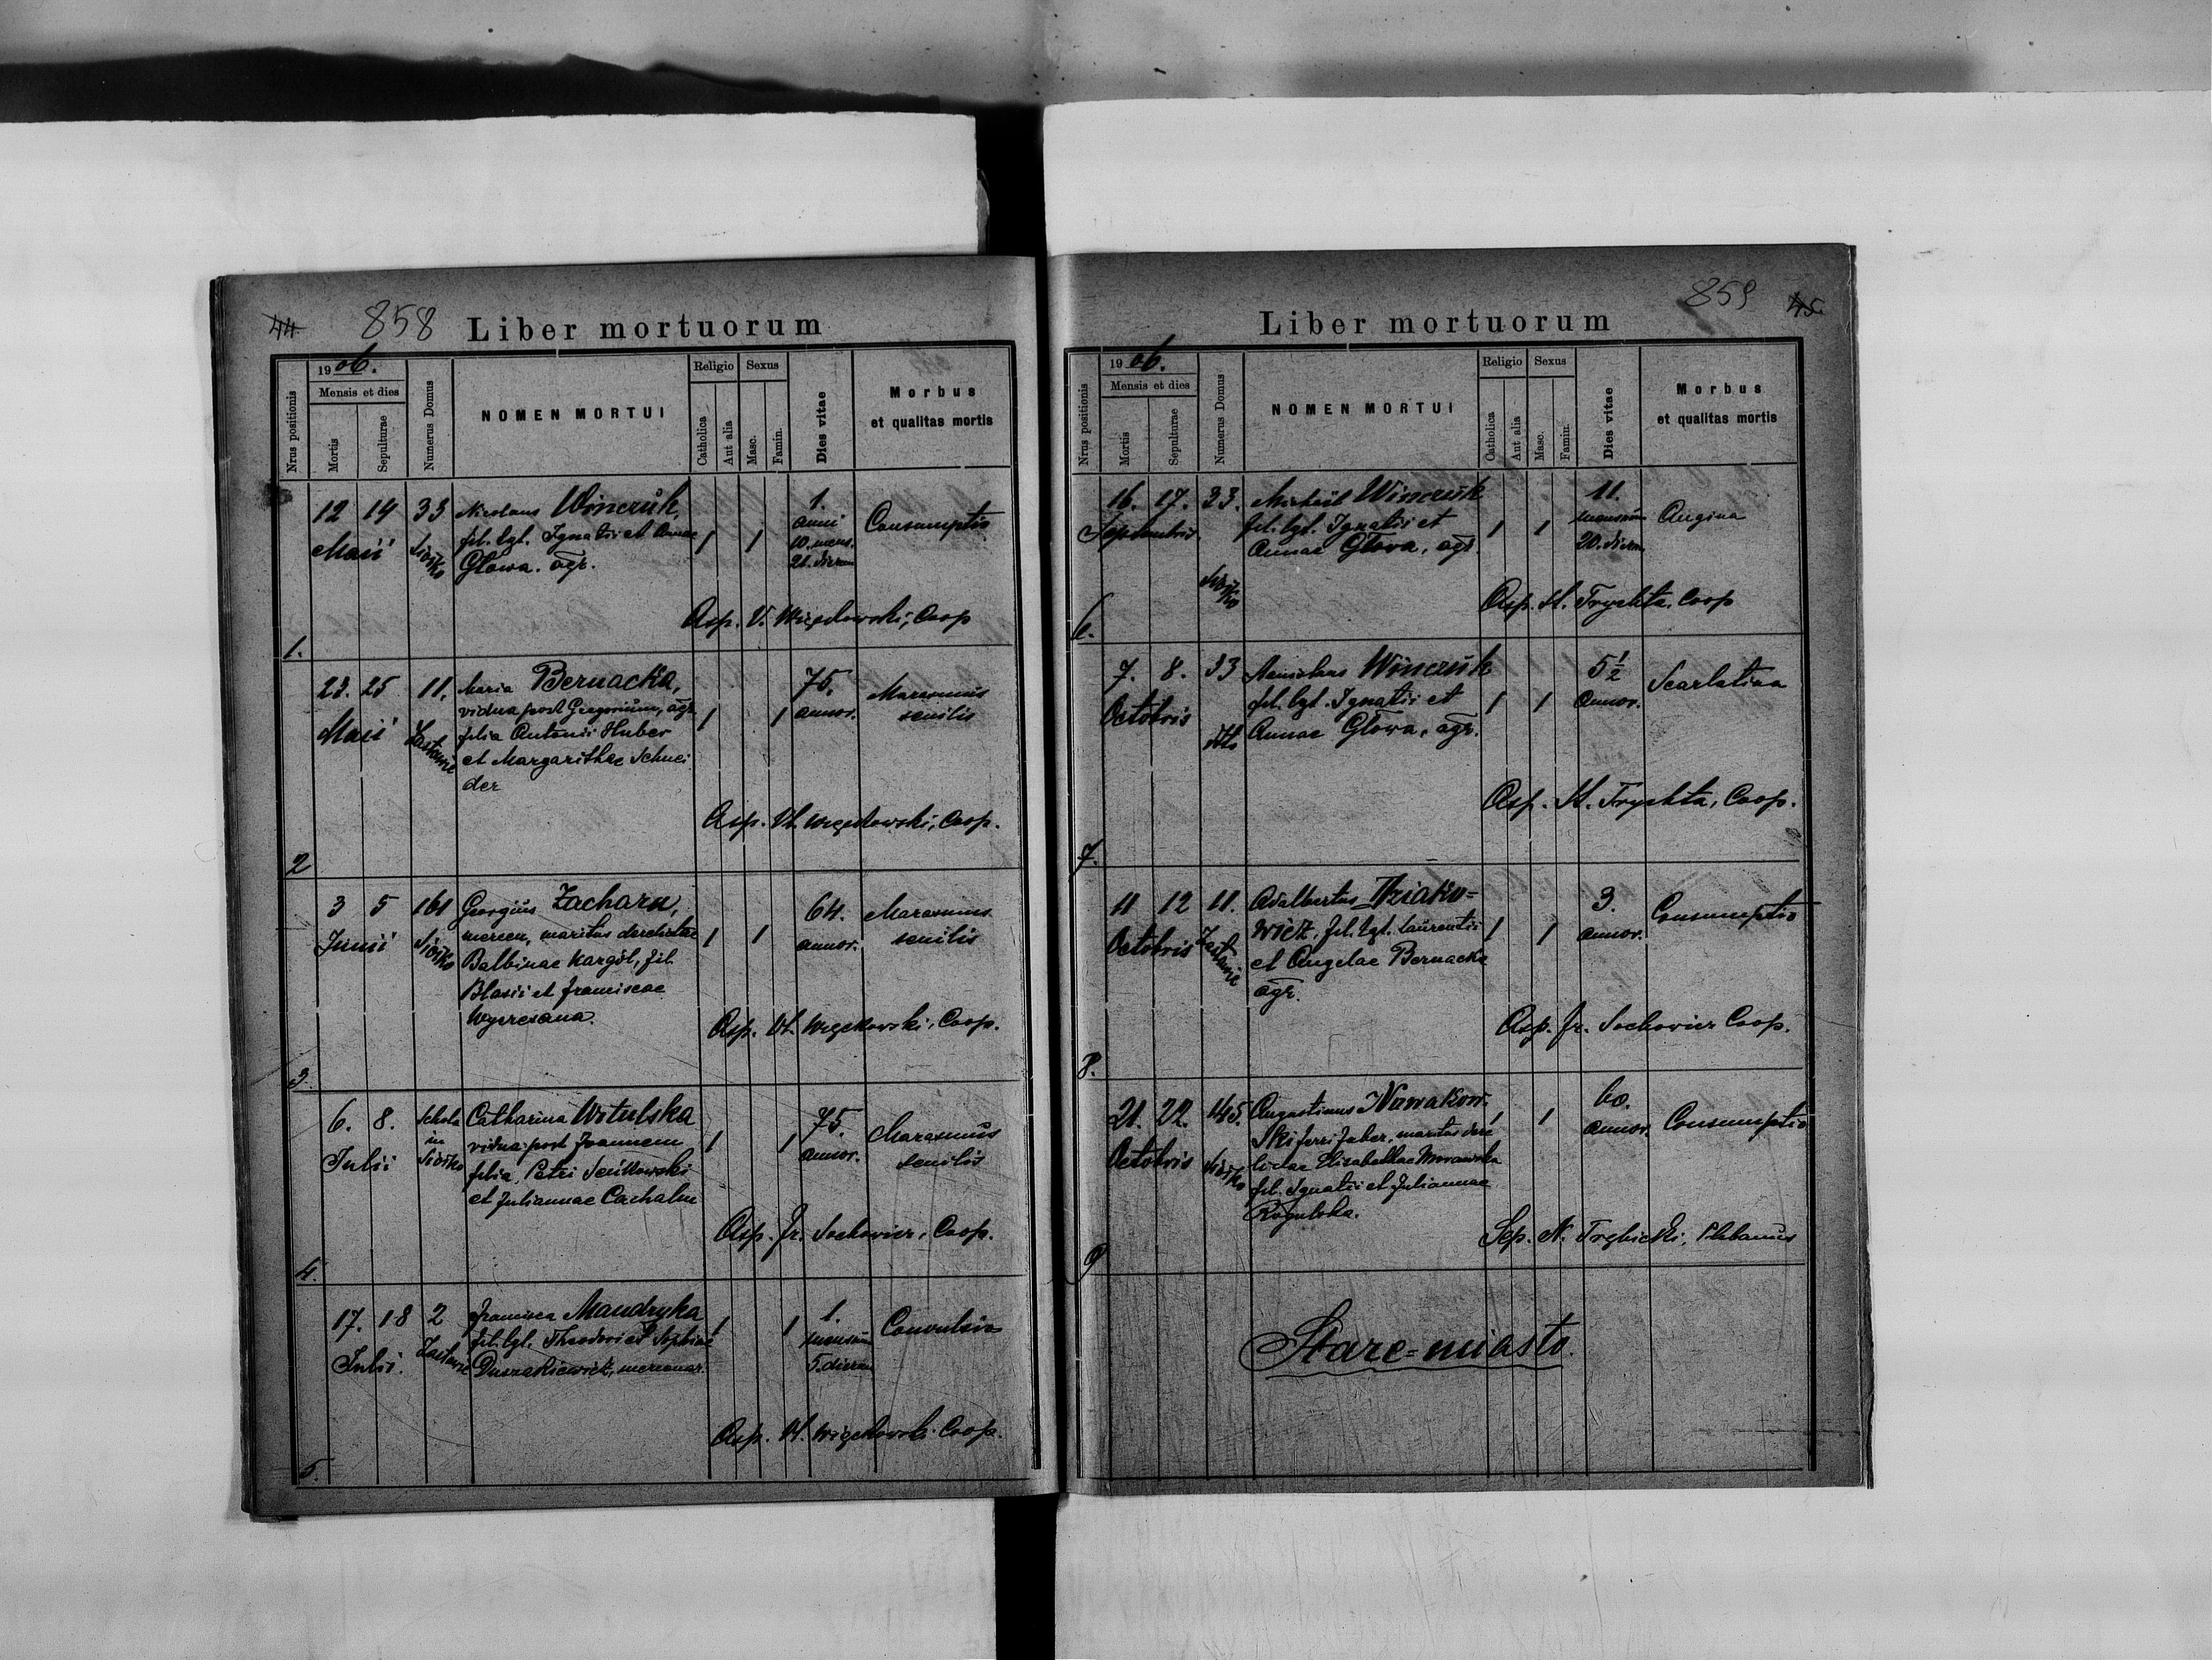 44 858 Liber mortuorum
Nrus positionis
1906.
Mensis et dies
Mortis
Sepulturae
Numerus Domus
NOMEN MORTUI
Religio
Catholica
Aut alia
Sexus
Masc.
Famin.
Dies vitae
Morbus
et qualitas mortis
1.
12 14 33 Nicolaus Winczuk, 1 1 1. Consumptio
Maii fil. lgt. Ignatii et Annae anni
Siółko Głowa. agr. 10. mens.
21. dierum
Asp. V. Węgłowski, Coop
2
23. 25 11. Maria Bernacka, 1 1 75. Marasmus
Maii Zastawie vidua post Gregorium, agr. annor. senilis
filia Antonii Huber
et Margarithae Schnei
der
Asp. Vl. Coop.
3.
3 5 161 Georgius Zachara, 1 1 64. Marasmus
Junii Siółko mercen, maritus derelictae annor. senilis
Balbinae Kargól, fil.
Blasii et Franciscae
Asp. Vl. Coop.
4.
6. 8. Schola Catharina Witulska 1 1 75. Marasmus
Julii in vidua post Joannem annor. senilis
Siółko filia, Petri
et Juliannae
Asp. Fr. Sochowicz, Coop.
5.
17. 18 2 Francisca Mandryka 1 1 1. Convulsio
Julii. Zastawie fil. lgt. Theodori et Sophiae mensium
Duszakiewicz, mercenar. 5. dierum
Asp. Vl. Coop.
859 45.
Liber mortuorum
Nrus positionis
1906.
Mensis et dies
Mortis
Sepulturae
Numerus Domus
NOMEN MORTUI
Religio
Catholica
Aut alia
Sexus
Masc.
Famin.
Dies vitae
Morbus
et qualitas mortis
6.
16. 17. 33. Michaël Winczuk 1 1 11. Angina
Septembris fil. lgt. Ignatii et mensium
Siółko Annae Głowa, agr. 20. dierum
Asp. St. Trychta, Coop
7.
7. 8. 33 Winczuk 1 1 5 1/2 Scarlatina
Octobris fil. lgt. Ignatii et annor.
Annae Głowa, agr.
Asp. St. Trychta, Coop.
8.
11 12 11. Adalbertus 1 1 3. Consumptio
Octobris Zastawie wicz, fil. lgt. Laurentii annor.
et Angelae Bernacka
agr.
Asp. Fr. Sochowicz Coop.
9
21. 22. 145. Augustinus Nowakow- 1 1 60. Consumptio
Octobris Siółko ski ferri faber, maritus dere annor.
lictae Elisabethae Morawska
fil. Ignatii et Juliannae
Rogulska.
Sep. N. Trębicki, Plebanus
Stare=miasto.